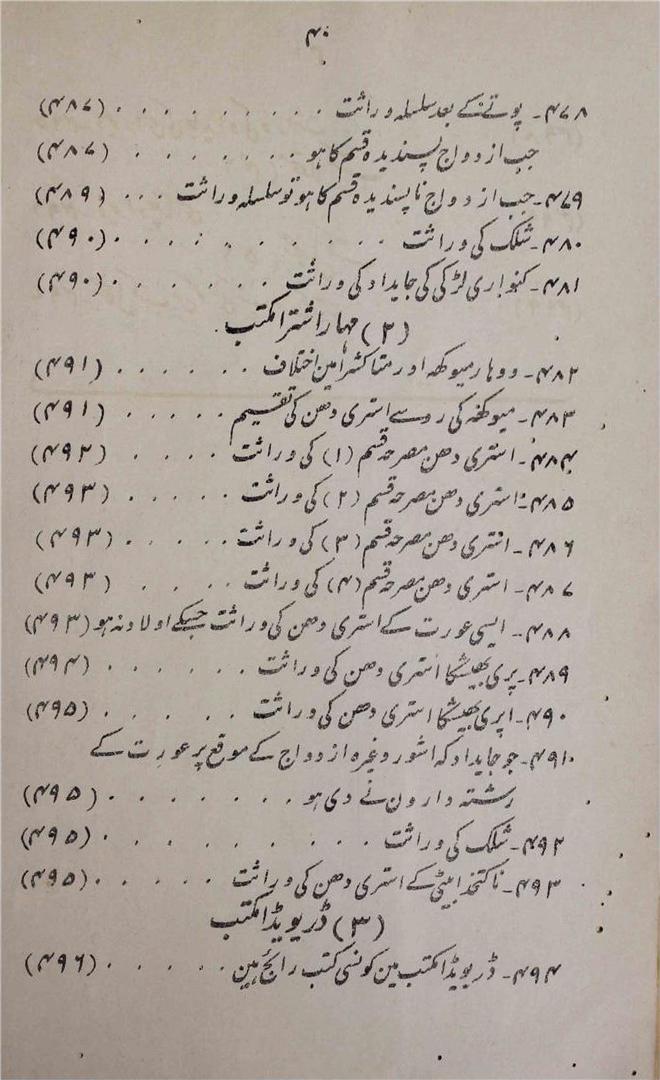 ۴۰
۴۷۸۔ پوتے کے بعد سلسلہ وراثت . . . . . . . . . (۴۸۷)
جب ازدواج پسندیدہ قسم کا ہو . . . . . . . (۴۸۷)
۴۷۹۔ جب ازدواج ناپسندیدہ قسم کا ہو تو سلسلہ وراثت . . . (۴۸۹)
۴۸۰۔ شلک کی وراثت . . . . . . . . . . (۴۹۰)
۴۸۱۔ کنواری لڑکی کی جایداد کی وراثت . . . . . . . (۴۹۰)
(۲) مہاراشٹرا مکتب
۴۸۲۔ ووہار میوکھہ اور متاکشرا مین اختلاف . . . . . . (۴۹۱)
۴۸۳۔ میوکھہ کی رو سے استری دھن کی تقسیم . . . . . (۴۹۱)
۴۸۴۔ استری دھن مصرحہ قسم (۱) کی وراثت . . . . (۴۹۲)
۴۸۵۔ استری دھن مصرحہ قسم (۲) کی وراثت . . . . . (۴۹۳)
۴۸۶۔ استری دھن مصرحہ قسم (۳) کی وراثت . . . . . (۴۹۳)
۴۸۷۔ استری دھن مصرحہ قسم (۴) کی وراثت . . . . (۴۹۳)
۴۸۸۔ ایسی عورت کے استری دھن کی وراثت جسکے اولاد نہ ہو (۴۹۳)
۴۸۹۔ پری بھیشکا استری دھن کی وراثت . . . . . . (۴۹۴)
۴۹۰۔ اپری بھیشکا استری دھن کی وراثت . . . . . . (۴۹۵)
۴۹۱۔ جو جایداد کہ اشور وغیرہ ازدواج کے موقع پر عورت کے
رشتہ دارون نے دی ہو . . . . . . . . (۴۹۵)
۴۹۲۔ شلک کی وراثت . . . . . . . . . . (۴۹۵)
۴۹۳۔ ناکتخدا بیٹی کے استری دھن کی وراثت . . . . . . (۴۹۵)
(۳) ڈریویڈا مکتب
۴۹۴۔ ڈریویڈا مکتب مین کونسی کتب رائج ہین . . . . . . (۴۹۶)